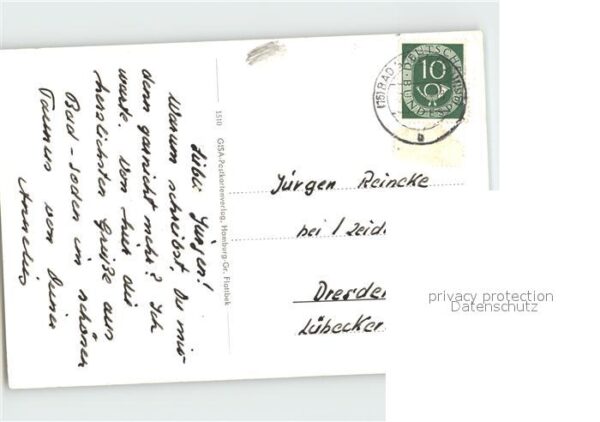 Lieber Jürgen!
Warum schreibst Du mir
denn garnicht mehr? Ich
warte. Von hier die
herzlichsten Grüße aus
Bad-Soden im schönen
Taunus von Deiner
Annelies
1510 GISA-Postkartenverlag, Hamburg-Gr. Flottbek
(16) BAD
b
10
DEUTSCHE
BUNDESPOST
Jürgen Reincke
bei
Dresden
Lübecker
privacy protection
Datenschutz